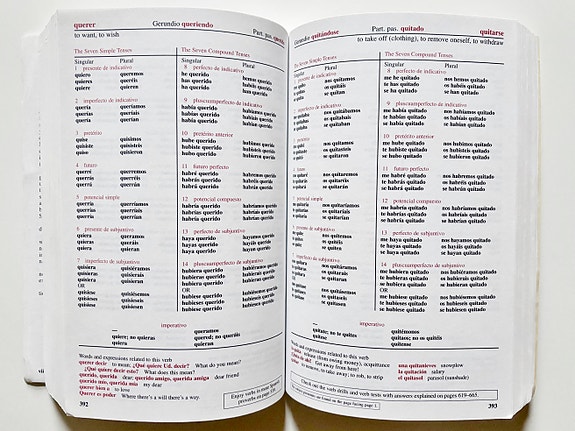 querer Gerundio queriendo Part. pas. querido
to want, to wish
The Seven Simple Tenses
Singular Plural
1 presente de indicativo
quiero queremos
quieres queréis
quiere quieren
2 imperfecto de indicativo
quería queríamos
querías queríais
quería querían
3 pretérito
quise quisimos
quisiste quisisteis
quiso quisieron
4 futuro
querré querremos
querrás querréis
querrá querrán
5 potencial simple
querría querríamos
querrías querríais
querría querrían
6 presente de subjuntivo
quiera queramos
quieras queráis
quiera quieran
7 imperfecto de subjuntivo
quisiera quisiéramos
quisieras quisierais
quisiera quisieran
OR
quisiese quisiésemos
quisieses quisieseis
quisiese quisiesen
The Seven Compound Tenses
Singular Plural
8 perfecto de indicativo
he querido hemos querido
has querido habéis querido
ha querido han querido
9 pluscuamperfecto de indicativo
había querido habíamos querido
habías querido habíais querido
había querido habían querido
10 pretérito anterior
hube querido hubimos querido
hubiste querido hubisteis querido
hubo querido hubieron querido
11 futuro perfecto
habré querido habremos querido
habrás querido habréis querido
habrá querido habrán querido
12 potencial compuesto
habría querido habríamos querido
habrías querido habríais querido
habría querido habrían querido
13 perfecto de subjuntivo
haya querido hayamos querido
hayas querido hayáis querido
haya querido hayan querido
14 pluscuamperfecto de subjuntivo
hubiera querido hubiéramos querido
hubieras querido hubierais querido
hubiera querido hubieran querido
OR
hubiese querido hubiésemos querido
hubieses querido hubieseis querido
hubiese querido hubiesen querido
imperativo
— queramos
quiere; no quieras quered; no queráis
quiera quieran
Words and expressions related to this verb
querer decir to mean; ¿Qué quiere Ud. decir? What do you mean?
¿Qué quiere decir esto? What does this mean?
querido, querida dear; querido amigo, querida amiga dear friend
querido mío, querida mía my dear
querer bien a to love
Querer es poder Where there's a will there's a way.
Enjoy verbs in more Spanish
proverbs on page
392
Gerundio quitándose Part. pas. quitado quitarse
to take off (clothing), to remove oneself, to withdraw
The Seven Simple Tenses
Singular Plural
presente de indicativo
me quito nos quitamos
te quitas os quitáis
se quita se quitan
imperfecto de indicativo
nos quitábamos
os quitabais
se quitaban
pretérito
nos quitamos
os quitasteis
se quitaron
futuro
nos quitaremos
os quitaréis
se quitarán
potencial simple
nos quitaríamos
os quitaríais
se quitarían
presente de subjuntivo
nos quitemos
os quitéis
se quiten
imperfecto de subjuntivo
nos quitáramos
os quitarais
se quitaran
nos quitásemos
os quitaseis
se quitasen
The Seven Compound Tenses
Singular Plural
8 perfecto de indicativo
me he quitado nos hemos quitado
te has quitado os habéis quitado
se ha quitado se han quitado
9 pluscuamperfecto de indicativo
me había quitado nos habíamos quitado
te habías quitado os habíais quitado
se había quitado se habían quitado
10 pretérito anterior
me hube quitado nos hubimos quitado
te hubiste quitado os hubisteis quitado
se hubo quitado se hubieron quitado
11 futuro perfecto
me habré quitado nos habremos quitado
te habrás quitado os habréis quitado
se habrá quitado se habrán quitado
12 potencial compuesto
me habría quitado nos habríamos quitado
te habrías quitado os habríais quitado
se habría quitado se habrían quitado
13 perfecto de subjuntivo
me haya quitado nos hayamos quitado
te hayas quitado os hayáis quitado
se haya quitado se hayan quitado
14 pluscuamperfecto de subjuntivo
me hubiera quitado nos hubiéramos quitado
te hubieras quitado os hubierais quitado
se hubiera quitado se hubieran quitado
OR
me hubiese quitado nos hubiésemos quitado
te hubieses quitado os hubieseis quitado
se hubiese quitado se hubiesen quitado
imperativo
— quitémonos
quítate; no te quites quitaos; no os quitéis
quítese quítense
Words and expressions related to this verb
release (from owing money), acquittance
Get away from here!
to remove, to take away; to rob, to strip
una quitanieves snowplow
la quitación salary
el quitasol parasol (sunshade)
Check out the verb drills and verb tests with answers explained on pages 619–665.
are found on the page facing page 1.
393